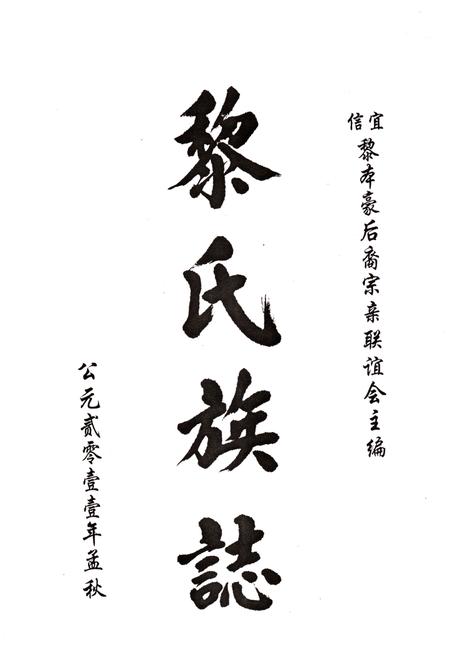 宜信
黎本豪后裔宗亲联谊会主编
黎氏族誌
公元贰零壹壹年孟秋